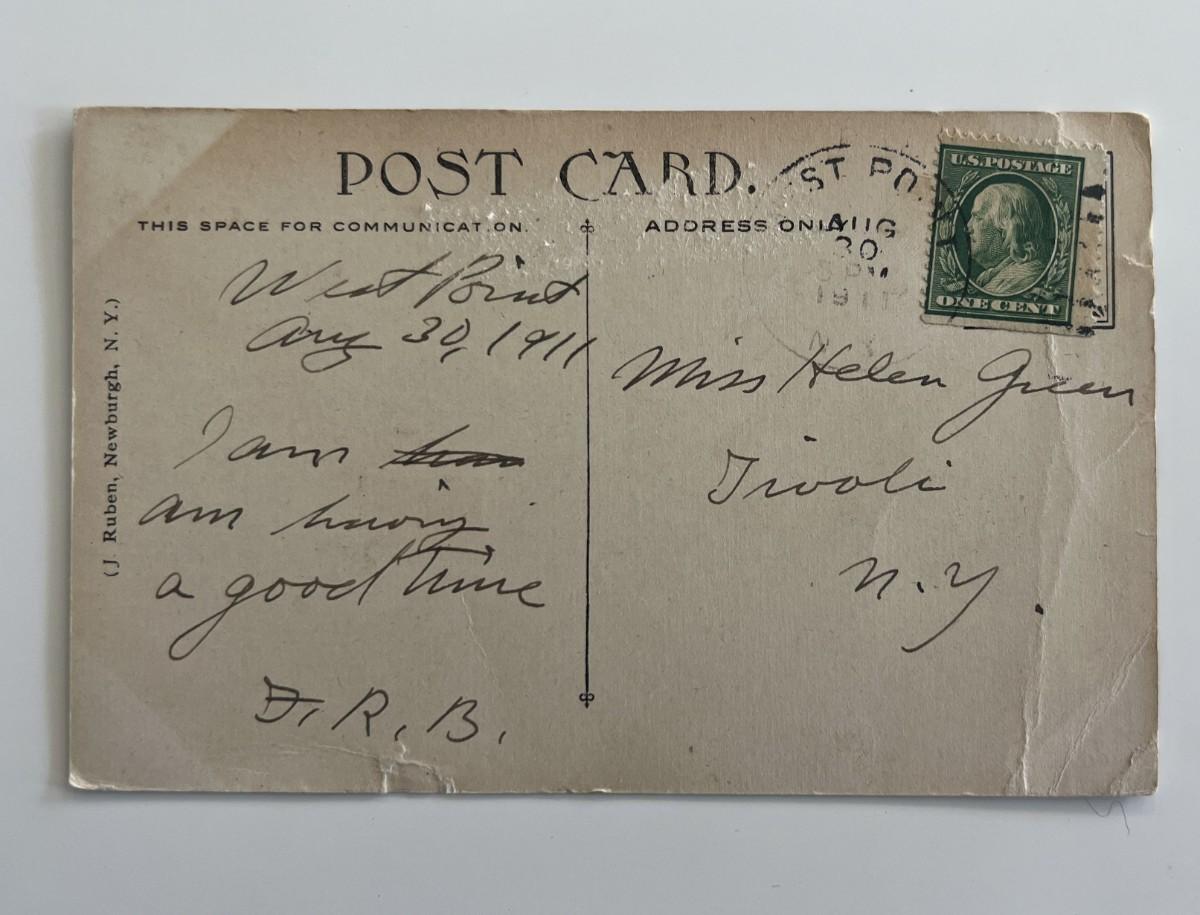 POST CARD.
THIS SPACE FOR COMMUNICAT ON.
ADDRESS ONLY
ST PO
AUG
30
PM
1911
N.Y.
U.S.POSTAGE
ONE CENT
(J. Ruben, Newburgh, N. Y.)
West Point
Aug 30, 1911
I am
am having
a good time
F. R. B.
Miss Helen Green
Tivoli
N. Y.